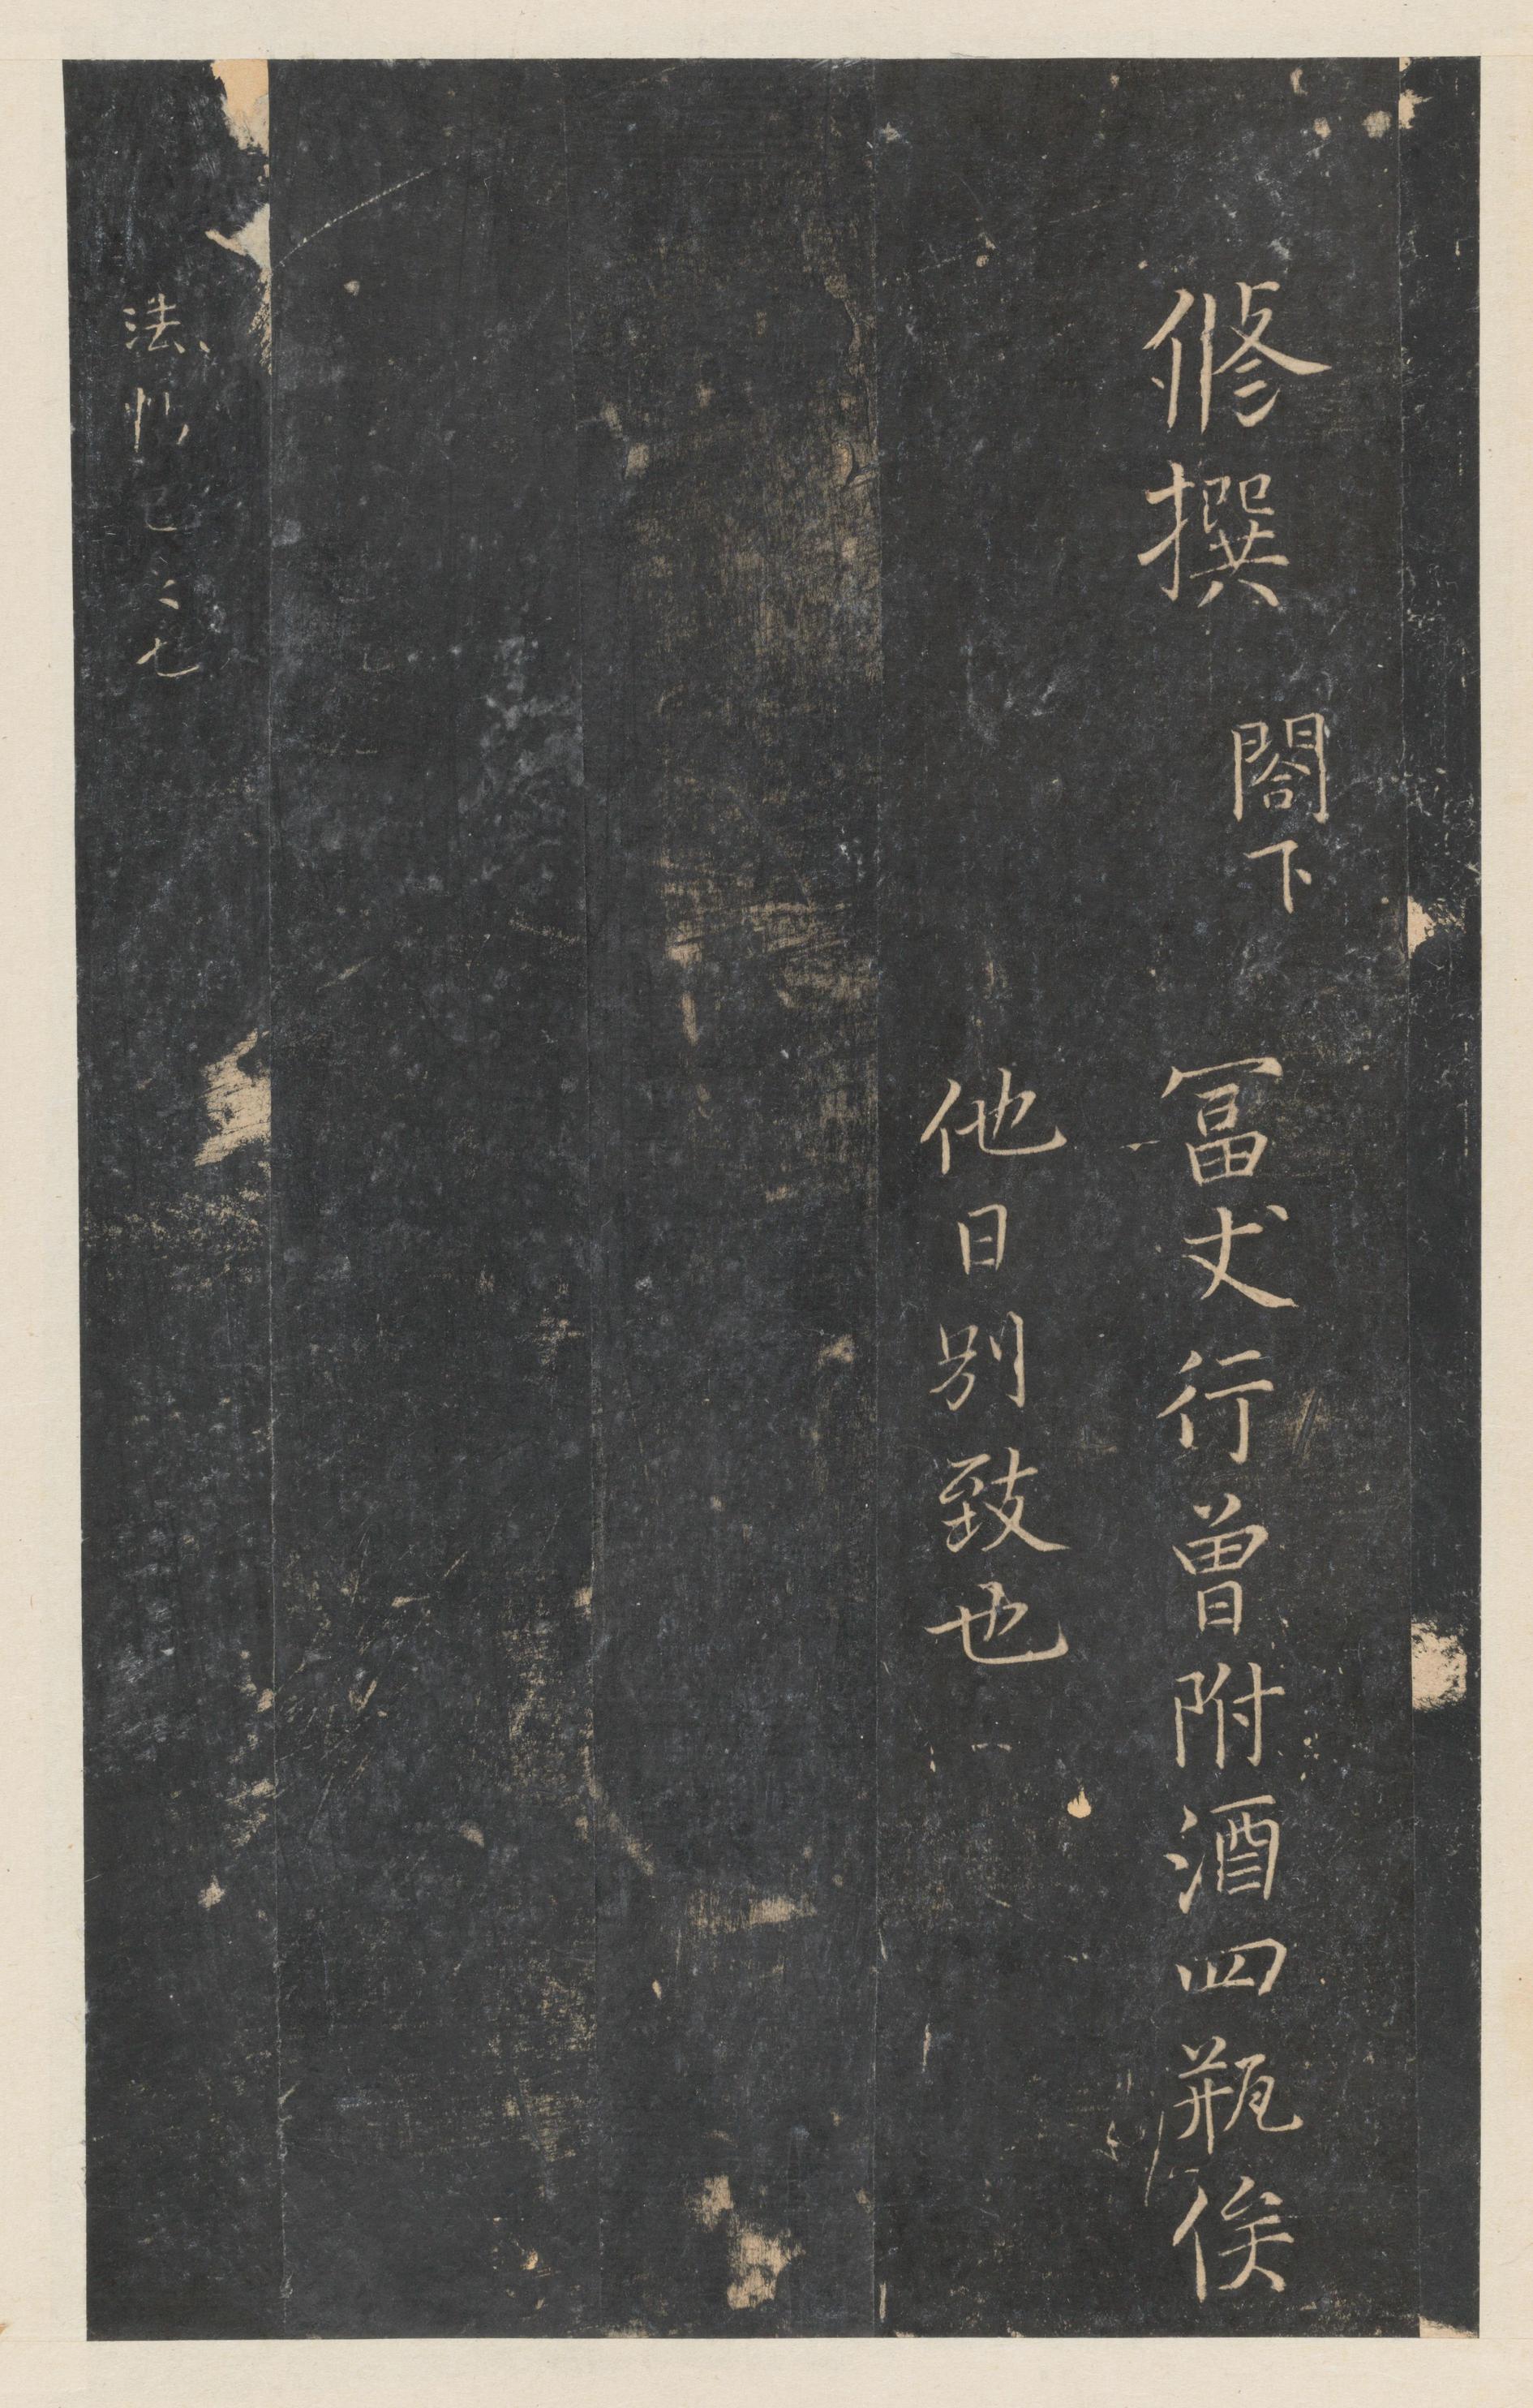 脩撰 閤下 冨丈行曾附酒四瓶俟
他日別致也
法帖己二七